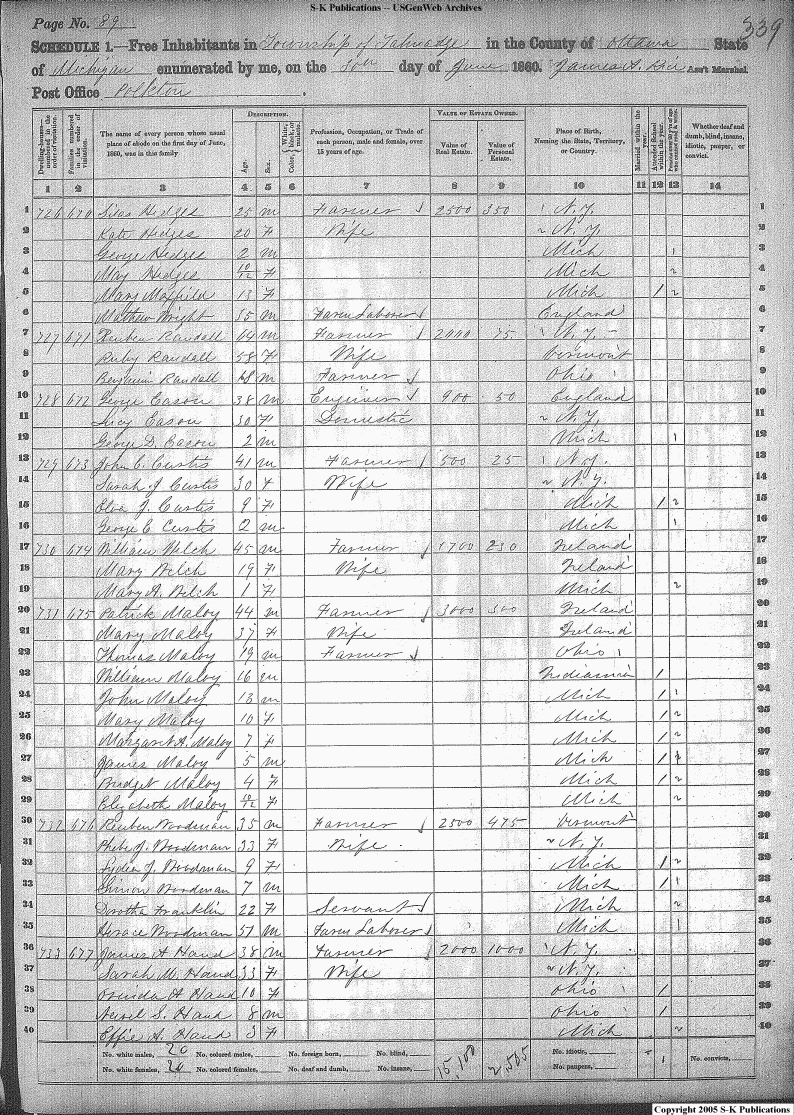 S-K Publications -- USGenWeb Archives
Page No. 89
339
SCHEDULE 1.—Free Inhabitants in Township of Talmadge in the County of Ottawa State
of Michigan enumerated by me, on the 30th day of June 1860. James A. Ass't Marshal
Post Office Polkton
Dwelling-houses— numbered in the order of visitation.
Families numbered in the order of visitation.
The name of every person whose usual place of abode on the first day of June, 1860, was in this family
DESCRIPTION.
Age.
Sex.
Color, White, black, or mulatto.
Profession, Occupation, or Trade of each person, male and female, over 15 years of age.
VALUE OF ESTATE OWNED.
Value of Real Estate.
Value of Personal Estate.
Place of Birth, Naming the State, Territory, or Country.
Married within the year.
Attended School within the year.
Whether deaf and dumb, blind, insane, idiotic, pauper, or convict.
1 2 3 4 5 6 7 8 9 10 11 12 13 14
1 726 670 Silas Hedges 25 m Farmer 2500 350 N.Y. 1
2 Kate Hedges 20 F Wife N.Y. 2
3 George Hedges 2 m Mich 1 3
4 May Hedges 10/12 F Mich 2 4
5 Mary Maffield 13 F Mich 1 2 5
6 Mathew Wright 35 m Farm Laborer England 6
7 727 671 Reuben Randall 64 m Farmer 2000 75 N.Y. 7
8 Ruby Randall 58 F Wife Vermont 8
9 Benjamin Randall 18 m Farmer Ohio 9
10 728 672 George Eason 38 m Engineer 900 50 England 10
11 Lucy Eason 30 F Domestic N.Y. 11
12 George D. Eason 2 m Mich 1 12
13 729 673 John C. Curtis 41 m Farmer 500 25 N.Y. 13
14 Sarah J Curtis 30 F Wife N.Y. 14
15 J. Curtis 9 F Mich 1 2 15
16 George C Curtis 2 m Mich 1 16
17 730 674 William Welch 45 m Farmer 1700 230 Ireland 17
18 Mary Welch 19 F Wife Ireland 18
19 Mary A. Welch 1 F Mich 2 19
20 731 675 Patrick Maloy 44 m Farmer 3000 300 Ireland 20
21 Mary Maloy 37 F Wife Ireland 21
22 Thomas Maloy 19 m Farmer Ohio 22
23 William Maloy 16 m Indianna 1 23
24 John Maloy 13 m Mich 1 1 24
25 Mary Maloy 10 F Mich 1 2 25
26 Margaret A. Maloy 7 F Mich 1 2 26
27 James Maloy 5 m Mich 1 27
28 Bridget Maloy 4 F Mich 1 2 28
29 Elizabeth Maloy 10/12 F Mich 2 29
30 732 676 Reuben Woodman 35 m Farmer 2500 475 Vermont 30
31 Phebe J. Woodman 33 F Wife N.Y. 31
32 Lydea J. Woodman 9 F Mich 1 2 32
33 Simon Woodman 7 m Mich 1 1 33
34 Dorotha Franklin 22 F Servant Mich 2 34
35 Horace Woodman 51 m Farm Laborer Mich 1 35
36 733 677 James A Hand 38 m Farmer 2000 1000 N.Y. 36
37 Sarah M. Hand 33 F Wife N.Y. 37
38 A Hand 10 F Ohio 1 38
39 S. Hand 8 m Ohio 1 39
40 Effie A. Hand 3 F Mich 2 40
No. white males, 20 No. colored males, No. foreign born, No. blind, 15,100 No. idiotic,
No. white females, 20 No. colored females, No. deaf and dumb, No. insane, No. paupers, 1 No. convicts,
Copyright 2005 S-K Publications